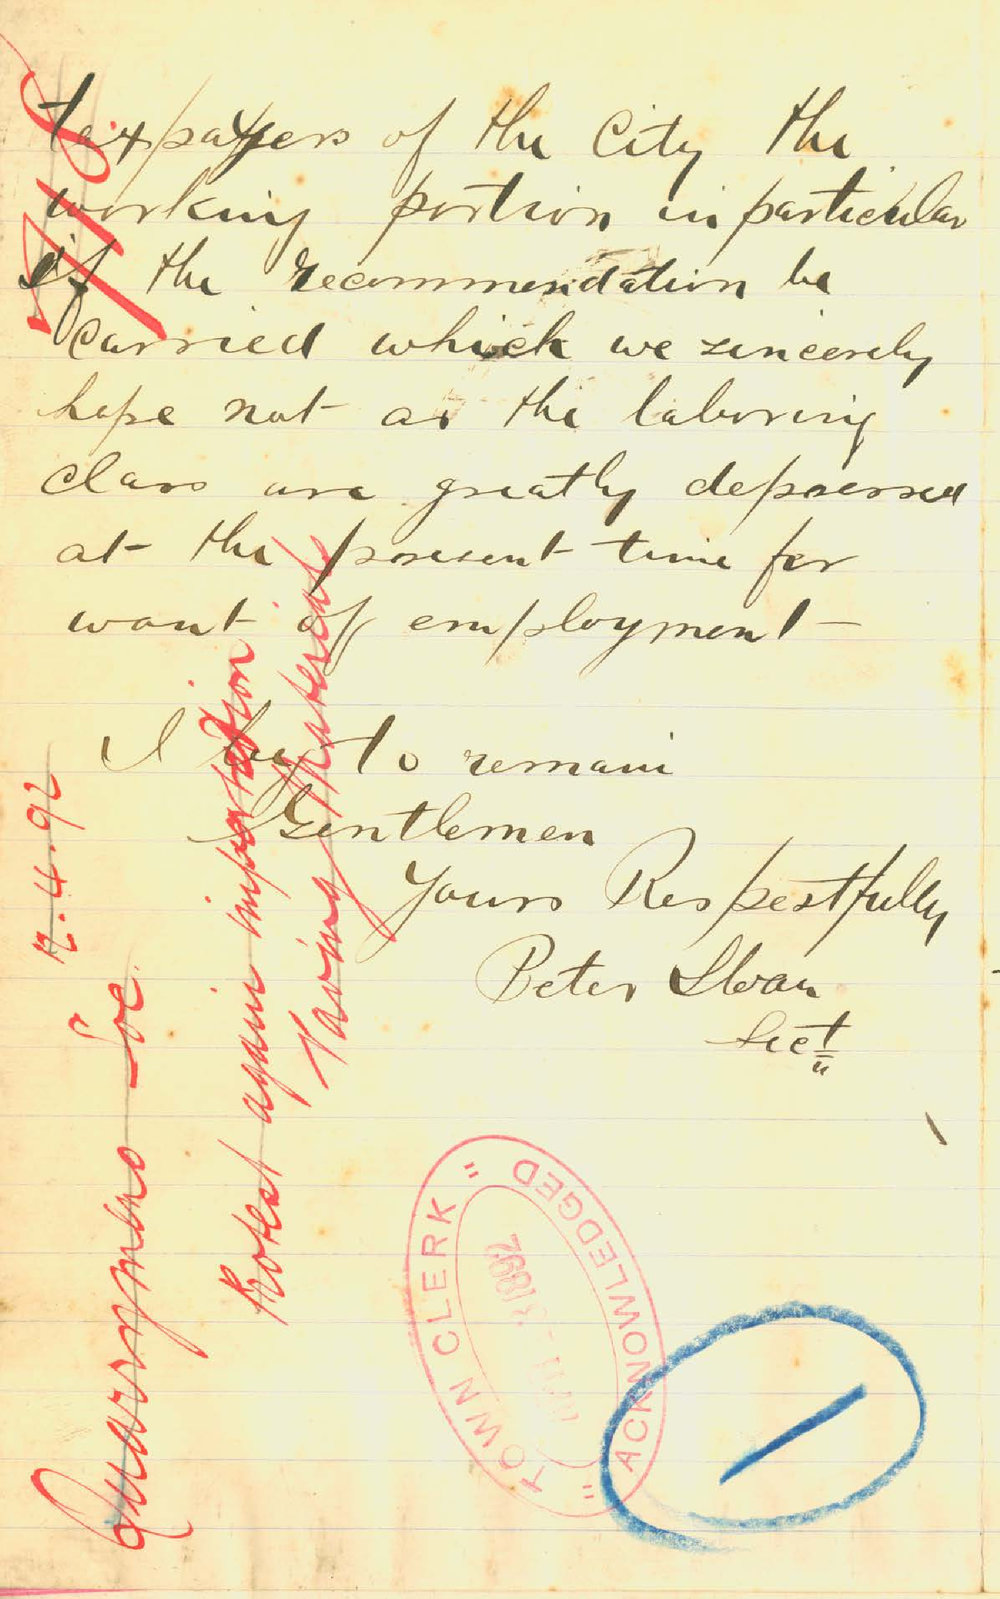 taxpayers of the City the
working portion in particular
if the recommendation be
carried which we sincerely
hope not as the laboring
class are greatly depressed
at the present time for
want of employment
I beg to remain
Gentlemen
Yours Respectfully
Peter Sloan
Sect
Quarrymens Soc. 7.4.92
Protest again importation
Paving Materials
"TOWN CLERK"
ACKNOWLEDGED
1892